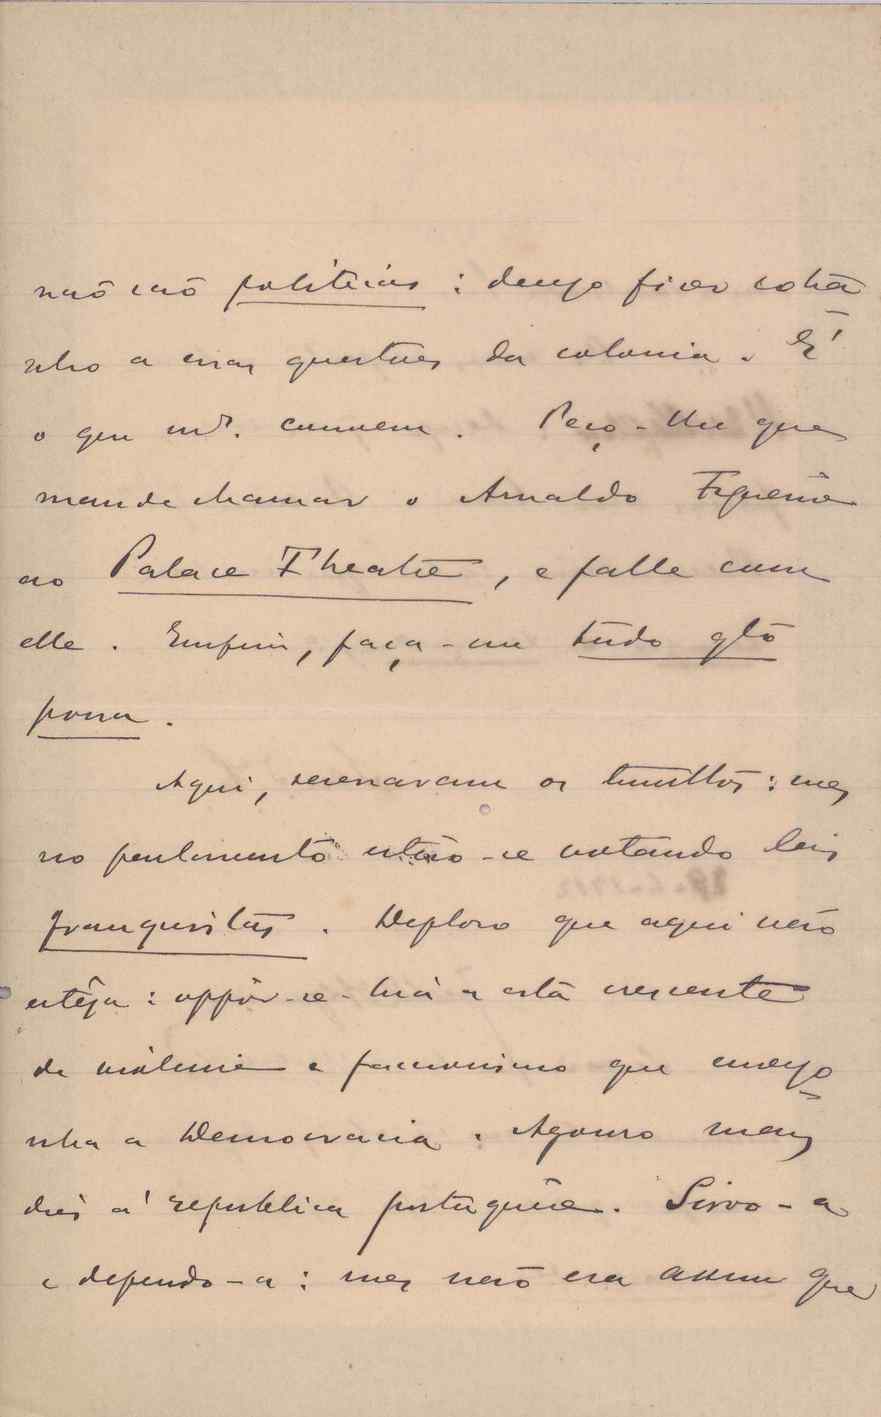 não são politicas : desejo ficar extra-
nho a essas questões da colonia. É
o que me convem. Peço-lhe que
mande chamar o Arnaldo Figueirôa
ao Palace Theatre, e falle com
elle. Emfim, faça-me tudo qto
possa.
Aqui, serenaram os tumultos: mas
no parlamento estão-se votando leis
franquistas. Deploro que aqui não
estêja: oppôr-se-hia a esta crescente
de violencia e faccionismo que envergo-
nha a Democracia. Agouro maus
dias á republica portuguêsa. Sirvo-a
e defendo-a: mas não era assim que